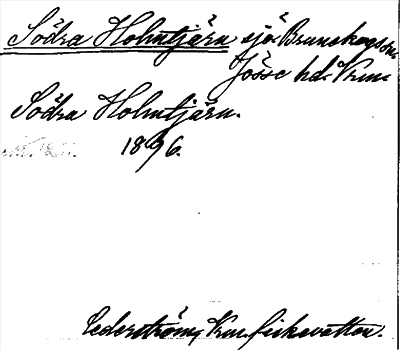 Södra Holmtjärn sjö Brunskogs sn.
Jösse hd. Vrml.
Södra Holmtjärn.
1896.
Cederström, Vrm. fiskevatten.